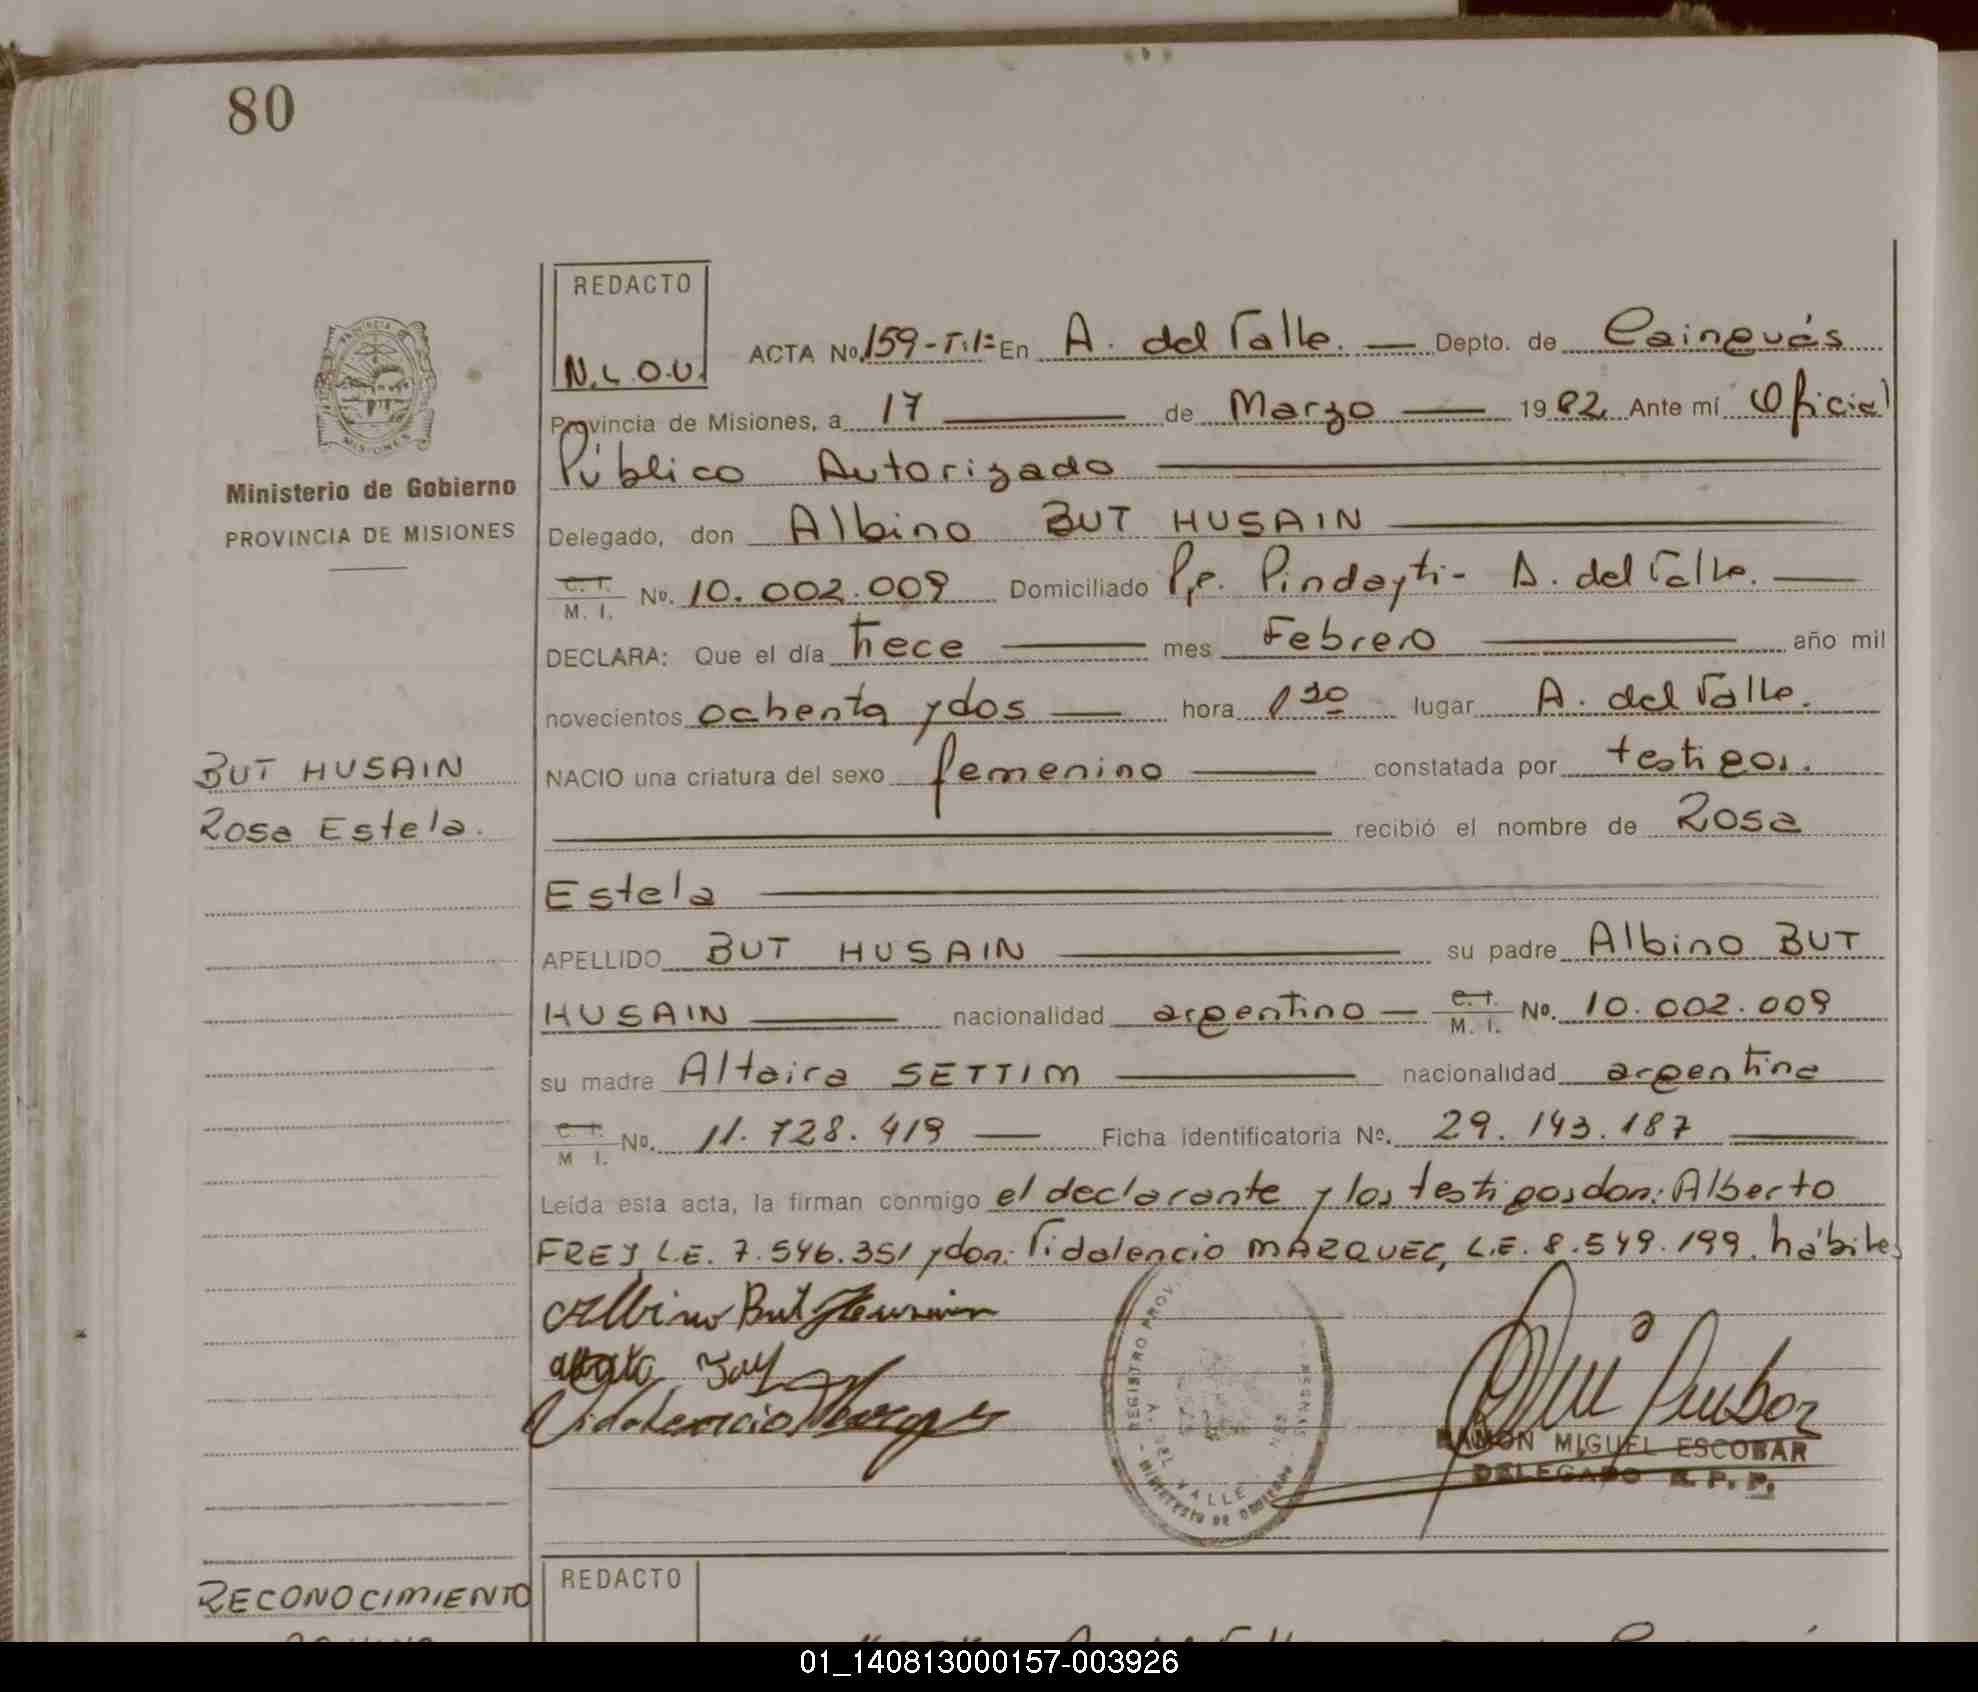 80
REDACTO
N.L.O.U.
ACTA No. 159-T:1= En A. del Valle. — Depto. de Cainguás
Provincia de Misiones, a 17 — de Marzo — 1982 Ante mí Oficial
Público Autorizado
Ministerio de Gobierno
PROVINCIA DE MISIONES
Delegado, don Albino BUT HUSAIN
C. I. / M. I. No. 10.002.009 Domiciliado Pje. Pindayti- A. del Valle.
DECLARA: Que el día trece — mes Febrero — año mil
novecientos ochenta y dos — hora 1 30 lugar A. del Valle.
BUT HUSAIN
Rosa Estela.
NACIO una criatura del sexo femenino — constatada por testigos.
— recibió el nombre de Rosa
Estela
APELLIDO BUT HUSAIN — su padre Albino BUT
HUSAIN — nacionalidad argentino — C. I. / M. I. No. 10.002.009
su madre Altaira SETTIM — nacionalidad argentina
C. I. / M. I. No. 11.728.419 — Ficha identificatoria No. 29.143.187
Leída esta acta, la firman conmigo el declarante y los testigos don: Alberto
FREY L.E. 7.546.351 y don: Vidalencio MARQUEZ, L.E. 8.549.199. hábiles
Albino But Husain
Vidalencio Marquez
REGISTRO PROV.
A. DEL VALLE
MINISTERIO DE GOBIERNO
RAMON MIGUEL ESCOBAR
DELEGADO R. P. P.
RECONOCIMIENTO
REDACTO
01_140813000157-003926